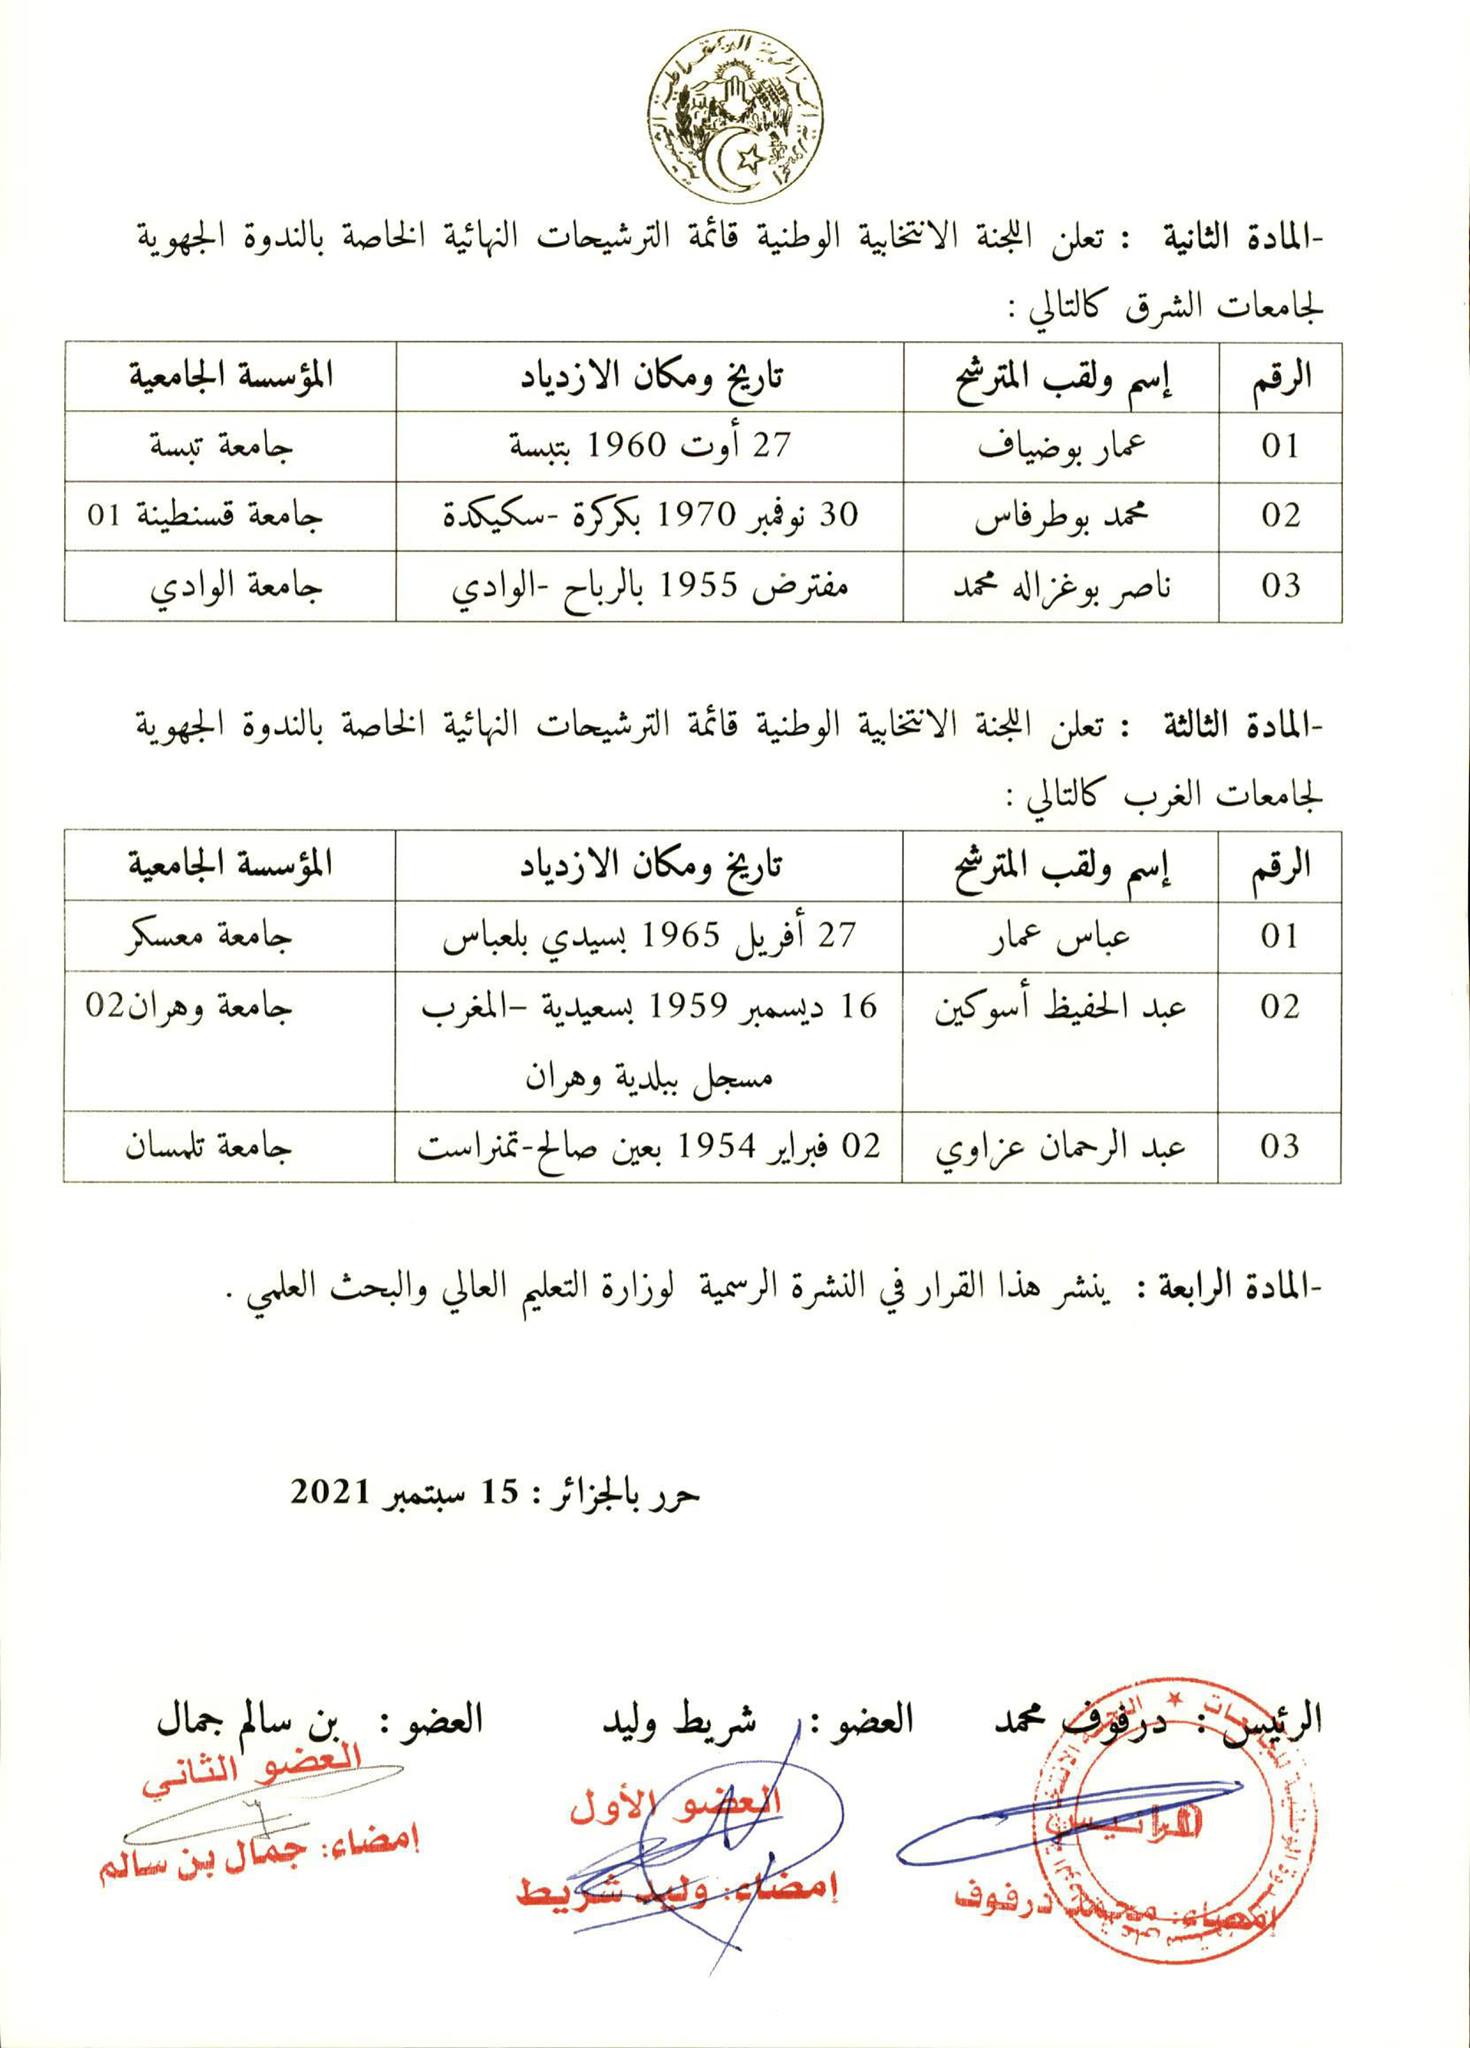 -المادة الثانية : تعلن اللجنة الانتخابية الوطنية قائمة الترشيحات النهائية الخاصة بالندوة الجهوية
لجامعات الشرق كالتالي :
الرقم إسم ولقب المترشح تاريخ ومكان الازدياد المؤسسة الجامعية
01 عمار بوضياف 27 أوت 1960 بتبسة جامعة تبسة
02 محمد بوطرفاس 30 نوفمبر 1970 بكركرة -سكيكدة جامعة قسنطينة 01
03 ناصر بوغزاله محمد مفترض 1955 بالرباح -الوادي جامعة الوادي
-المادة الثالثة : تعلن اللجنة الانتخابية الوطنية قائمة الترشيحات النهائية الخاصة بالندوة الجهوية
لجامعات الغرب كالتالي :
الرقم إسم ولقب المترشح تاريخ ومكان الازدياد المؤسسة الجامعية
01 عباس عمار 27 أفريل 1965 بسيدي بلعباس جامعة معسكر
02 عبد الحفيظ أسوكين 16 ديسمبر 1959 بسعيدية –المغرب جامعة وهران02
مسجل ببلدية وهران
03 عبد الرحمان عزاوي 02 فبراير 1954 بعين صالح-تمنراست جامعة تلمسان
-المادة الرابعة : ينشر هذا القرار في النشرة الرسمية لوزارة التعليم العالي والبحث العلمي .
حرر بالجزائر : 15 سبتمبر 2021
الرئيس : درفوف محمد العضو : شريط وليد العضو : بن سالم جمال
الرئيس العضو الأول العضو الثاني
إمضاء: محمد درفوف إمضاء: وليد شريط إمضاء: جمال بن سالم